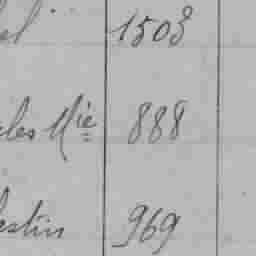 el 1508
les Mie 888
estin 969